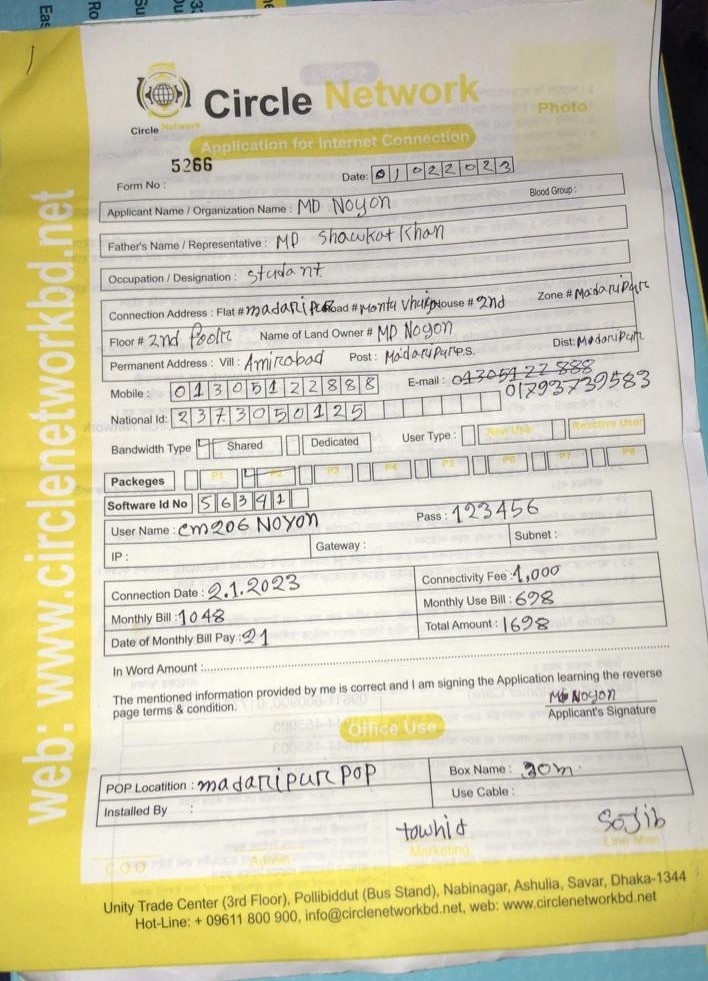 Circle Network
Circle Network
Application for Internet Connection
Photo
5266
Form No :
Date: 01022023
Blood Group :
Applicant Name / Organization Name : MD Noyon
Father's Name / Representative : MD Shawkat Khan
Occupation / Designation : Studant
Connection Address : Flat # madaripur Road # Montu House # 2nd Zone # Madaripur
Floor # 2nd Name of Land Owner # MD Noyon
Permanent Address : Vill : Amirabad Post : Madaripur P.S. Dist: Madaripur
Mobile : 01305122888 E-mail : 01305122888
01793739583
National Id: 2373050125
Bandwidth Type Shared Dedicated User Type : New User Reactive User
Packeges P1 P2 P3 P4 P5 P6 P7 P8
Software Id No 56341
User Name : cm206 NOYON Pass : 123456
IP : Gateway : Subnet :
Connection Date : 2.1.2023 Connectivity Fee : 1,000
Monthly Bill : 1048 Monthly Use Bill : 698
Date of Monthly Bill Pay : 21 Total Amount : 1698
In Word Amount :
The mentioned information provided by me is correct and I am signing the Application learning the reverse
page terms & condition.
MD Noyon
Applicant's Signature
Office Use
POP Locatition : madaripur POP Box Name :
Installed By : Use Cable :
towhid Sojib
C.O.O Admin Marketing Line Man
Unity Trade Center (3rd Floor), Pollibiddut (Bus Stand), Nabinagar, Ashulia, Savar, Dhaka-1344
Hot-Line: + 09611 800 900, info@circlenetworkbd.net, web: www.circlenetworkbd.net
web: www.circlenetworkbd.net